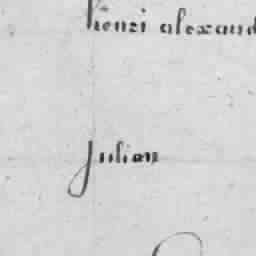 henri alexand
Julian